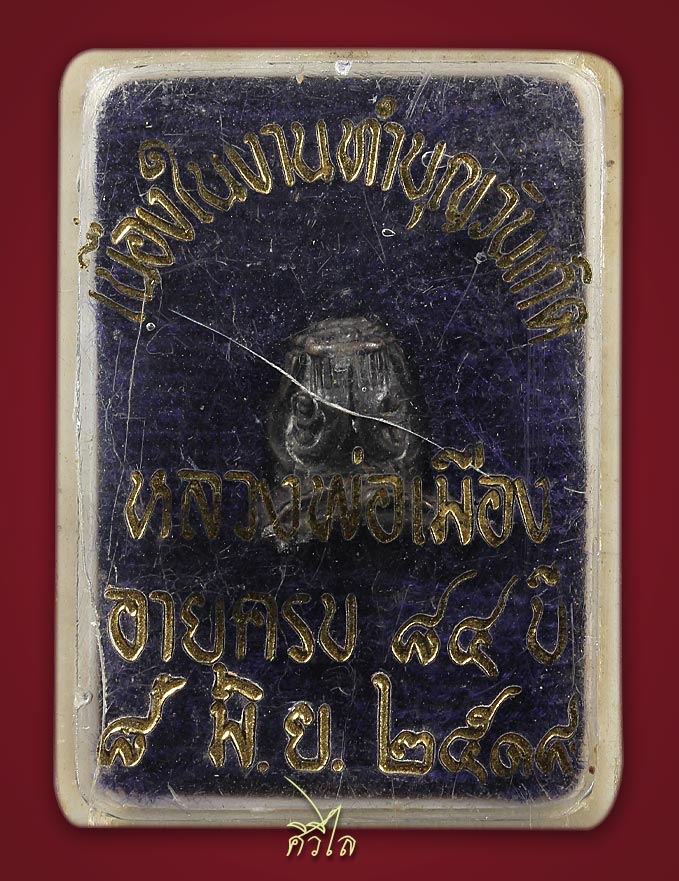 เนื่องในงานทำบุญวันเกิด
หลวงพ่อเมือง
อายุครบ ๘๔ ปี
๘ มิ.ย. ๒๕๑๙
ศิวิไล